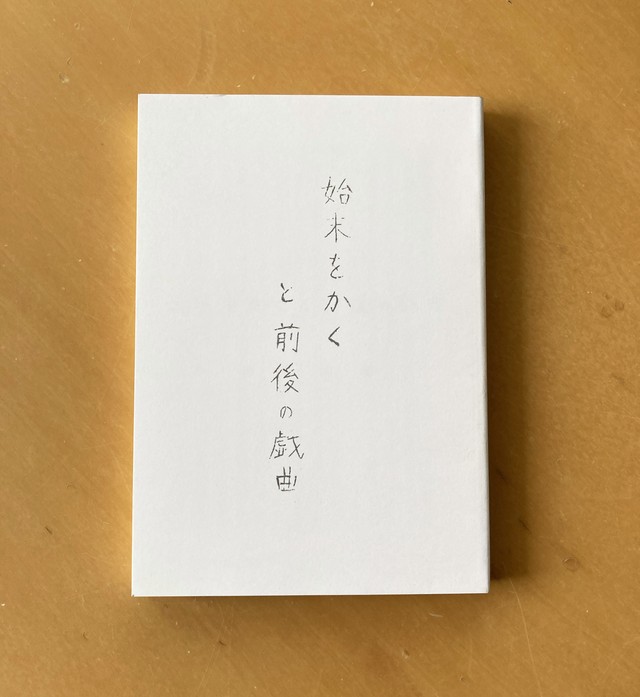 始末をかく
と前後の戯曲